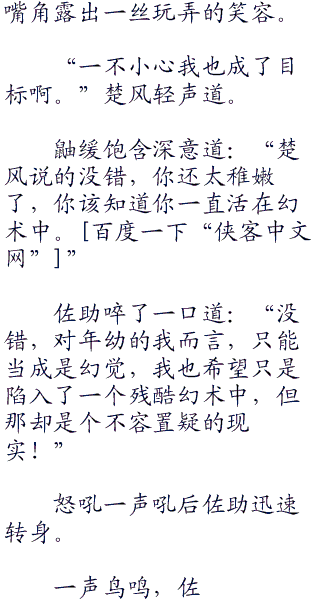 嘴角露出一丝玩弄的笑容。
“一不小心我也成了目
标啊。”楚风轻声道。
鼬缓饱含深意道：“楚
风说的没错，你还太稚嫩
了，你该知道你一直活在幻
术中。[百度一下“侠客中文
网”]”
佐助啐了一口道：“没
错，对年幼的我而言，只能
当成是幻觉，我也希望只是
陷入了一个残酷幻术中，但
那却是个不容置疑的现
实！”
怒吼一声吼后佐助迅速
转身。
一声鸟鸣，佐